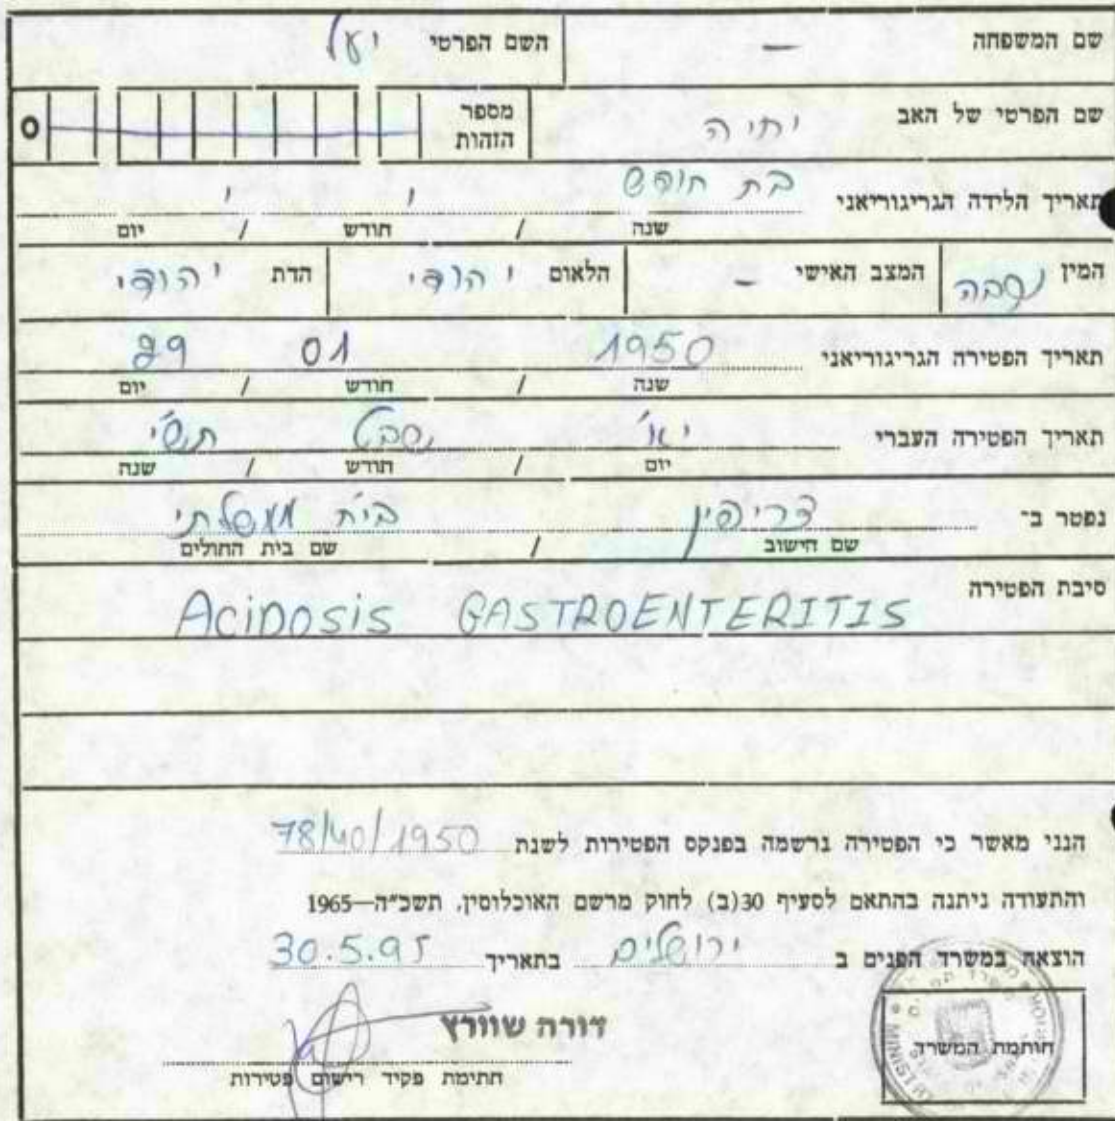 שם המשפחה — השם הפרטי יעל
שם הפרטי של האב יחיה מספר הזהות 0
תאריך הלידה הגריגוריאני בת חודש
שנה / חודש / יום
המין נקבה המצב האישי – הלאום יהודי הדת יהודי
תאריך הפטירה הגריגוריאני 1950 01 29
שנה / חודש / יום
תאריך הפטירה העברי יא' שבט תש"י
יום / חודש / שנה
נפטר ב־ צריפין בי"ח ממשלתי
שם הישוב / שם בית החולים
סיבת הפטירה
ACIDOSIS GASTROENTERITIS
הנני מאשר כי הפטירה נרשמה בפנקס הפטירות לשנת 78/40/1950
והתעודה ניתנה בהתאם לסעיף 30(ב) לחוק מרשם האוכלוסין, תשכ"ה—1965
הוצאה במשרד הפנים ב ירושלים בתאריך 30.5.95
דורה שוורץ
חתימת פקיד רישום פטירות
חותמת המשרד